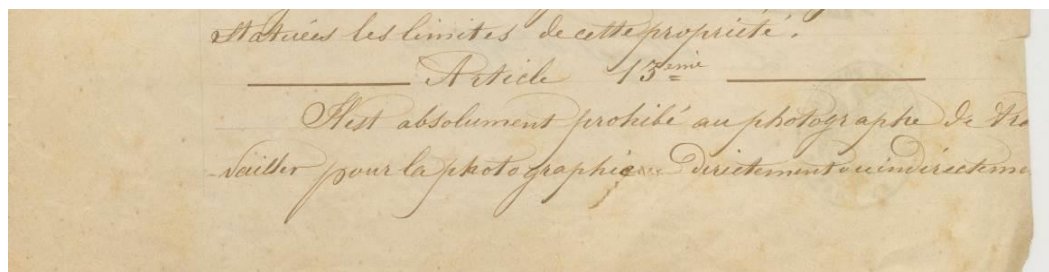 statuées les limites de cette propriété.
Article 13ème
Il est absolument prohibé au photographe de tra
-vailler pour la photographie directement ou indirecteme